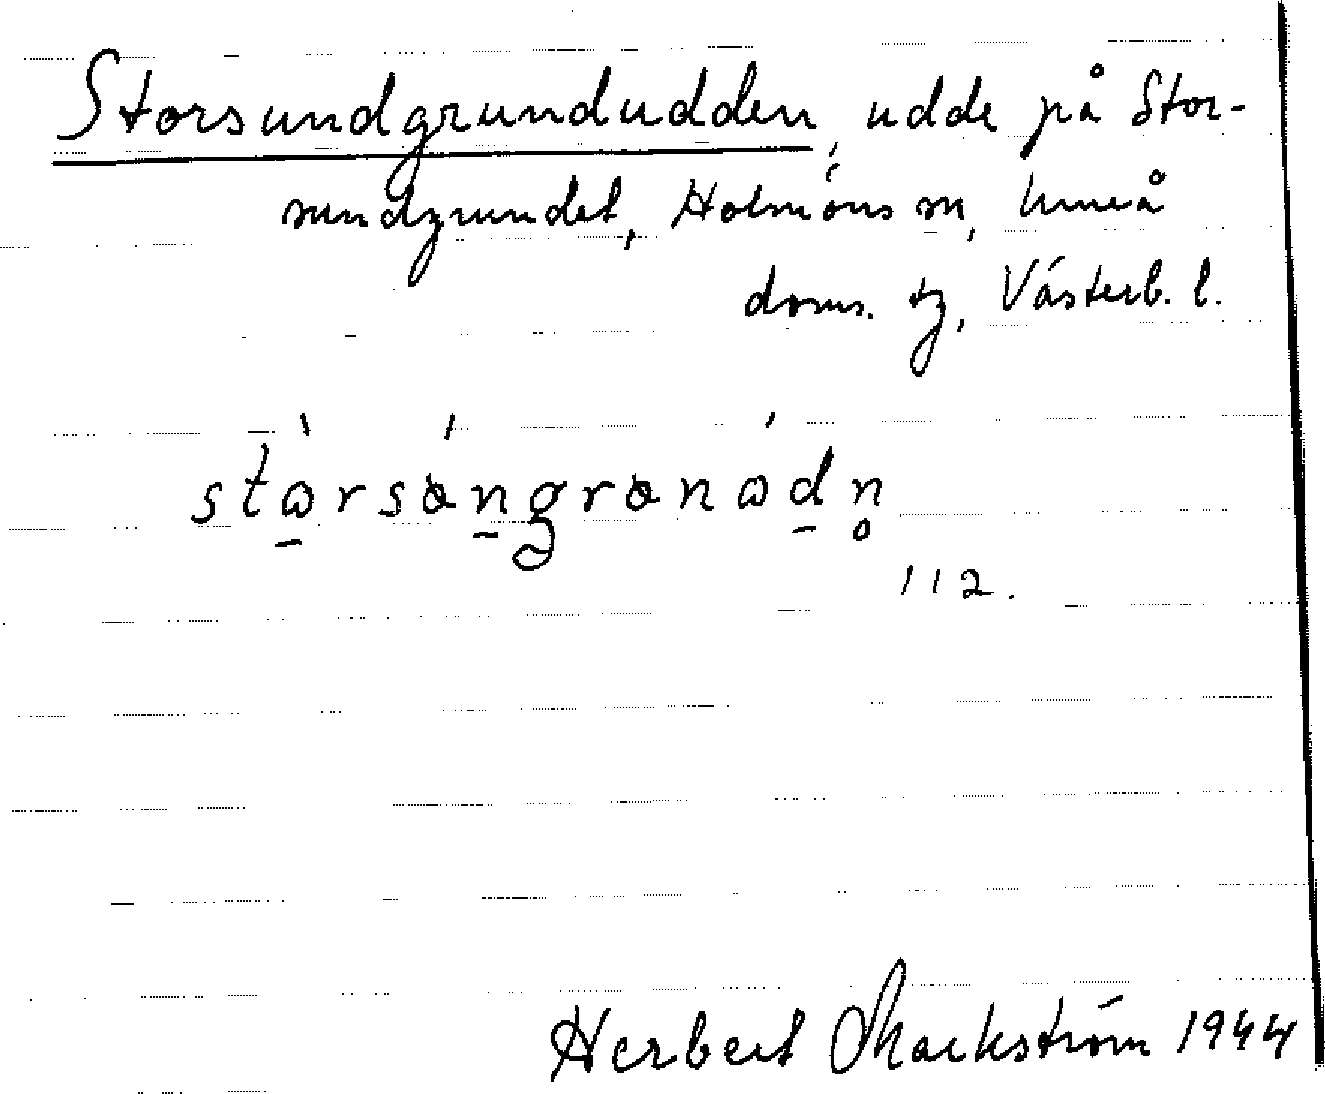 Storsundgrundudden, udde på Stor-
sundgrundet, Holmöns sn, Umeå
doms. tg, Västerb. l.
112.
Herbert Markström 1944